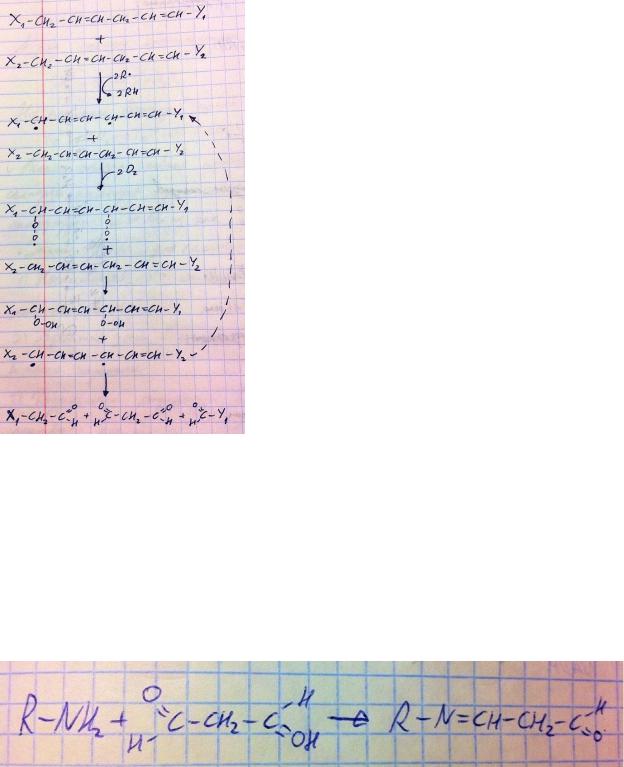 X₁-CH₂-CH=CH-CH₂-CH=CH-Y₁
+
X₂-CH₂-CH=CH-CH₂-CH=CH-Y₂
2R•
2RH
X₁-CH-CH=CH-CH-CH=CH-Y₁
• •
+
X₂-CH₂-CH=CH-CH₂-CH=CH-Y₂
2O₂
X₁-CH-CH=CH-CH-CH=CH-Y₁
O O
O• O•
+
X₂-CH₂-CH=CH-CH₂-CH=CH-Y₂
X₁-CH-CH=CH-CH-CH=CH-Y₁
O-OH O-OH
+
X₂-CH-CH=CH-CH-CH=CH-Y₂
• •
X₁-CH₂-C=O-H + O=H-C-CH₂-C=O-H + O=H-C-Y₁
R-NH₂ + O=H-C-CH₂-C-H=OH → R-N=CH-CH₂-C-H=O